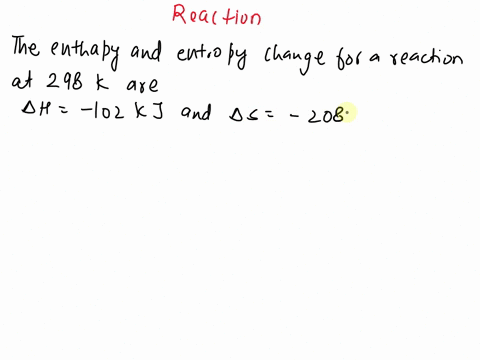 Reaction
The enthapy and entropy change for a reaction
at 298 K are
ΔH = -102 KJ and ΔS = - 208